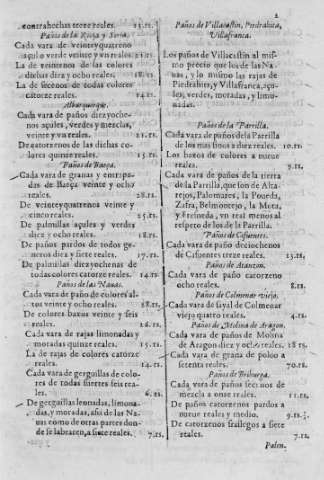 contrahechas treze reales. 13.rs.
Paños de la Rioja y Soria.
Cada vara de veintey quatreno
açul o verde veinte y vn reales 21.rs.
La de veintenos de las colores
dichas diez y ocho reales. 18.rs.
La de sezenos de todas colores
catorze reales. 14.rs.
Alburquerque.
Cada vara de paños diezyoche-
nos açules, verdes y mezclas,
veinte y vn reales. 21.rs.
De catorzenos de las dichas co-
lores quinze reales. 15.rs.
Paños de Baeça.
Cada vara de granas y entrapa-
das de Baeça veinte y ocho
reales. 28.rs.
De veinteyquatrenos veinte y
cinco reales. 25.rs.
De palmillas açules y verdes
diez y ocho reales. 18.rs.
De paños pardos de todos ge-
neros diez y siete reales. 17.rs.
De palmillas diezyochenas de
todas colores catorze reales. 14.rs
Paños de las Nauas.
Cada vara de paño de colores al-
tos veinte y ocho reales. 28.rs.
De colores baxos veinte y seis
reales. 26.rs.
Cada vara de rajas limonadas y
moradas quinze reales. 15.rs.
La de rajas de colores catorze
reales. 14.rs.
Cada vara de gerguillas de colo-
res de todas suertes seis rea-
les. 6.rs.
De gerguillas leonadas, limona-
das, y moradas, asi de las Na-
uas como de otras partes don-
de se labraren, a siete reales. 7.rs.
2
Paños de Villacastin, Piedrahita,
Villafranca.
Los paños de Villacastin al mis-
mo precio que los de las Na-
uas, y lo mismo las rajas de
Piedrahita, y Villafranca, açu-
les, verdes, moradas, y limo-
nadas.
Paños de la Parrilla.
Cada vara de paños de la Parrilla
de los mas finos a diez reales. 10.rs.
Los baxos de colores a nueue
reales. 9.rs.
Cada vara de paños de la tierra
de la Parrilla, que son de Alta-
rejos, Palomares, la Poueda,
Zafra, Belmontejo, la Mota,
y Fresneda, vn real menos al
respeto de los de la Parrilla.
Paños de Cifuentes.
Cada vara de paño dieziochenos
de Cifuentes treze reales. 13.rs.
Paños de Atanzon.
Cada vara de paño catorzeno
ocho reales. 8.rs.
Paños de Colmenar viejo.
Cada vara de sayal de Colmenar
viejo quatro reales. 4.rs.
Paños de Molina de Aragon.
Cada vara de paños de Molina
de Aragon diez y ocho reales. 18.rs.
Cada vara de grana de poluo a
setenta reales. 70.rs.
Paños de Brihuega.
Cada vara de paños sezenos de
mezcla a onze reales. 11.rs.
De paños catorzenos pardos a
nueue reales y medio. 9.rs.½
De catorzenos frailegos a siete
reales. 7.rs.
Palen.